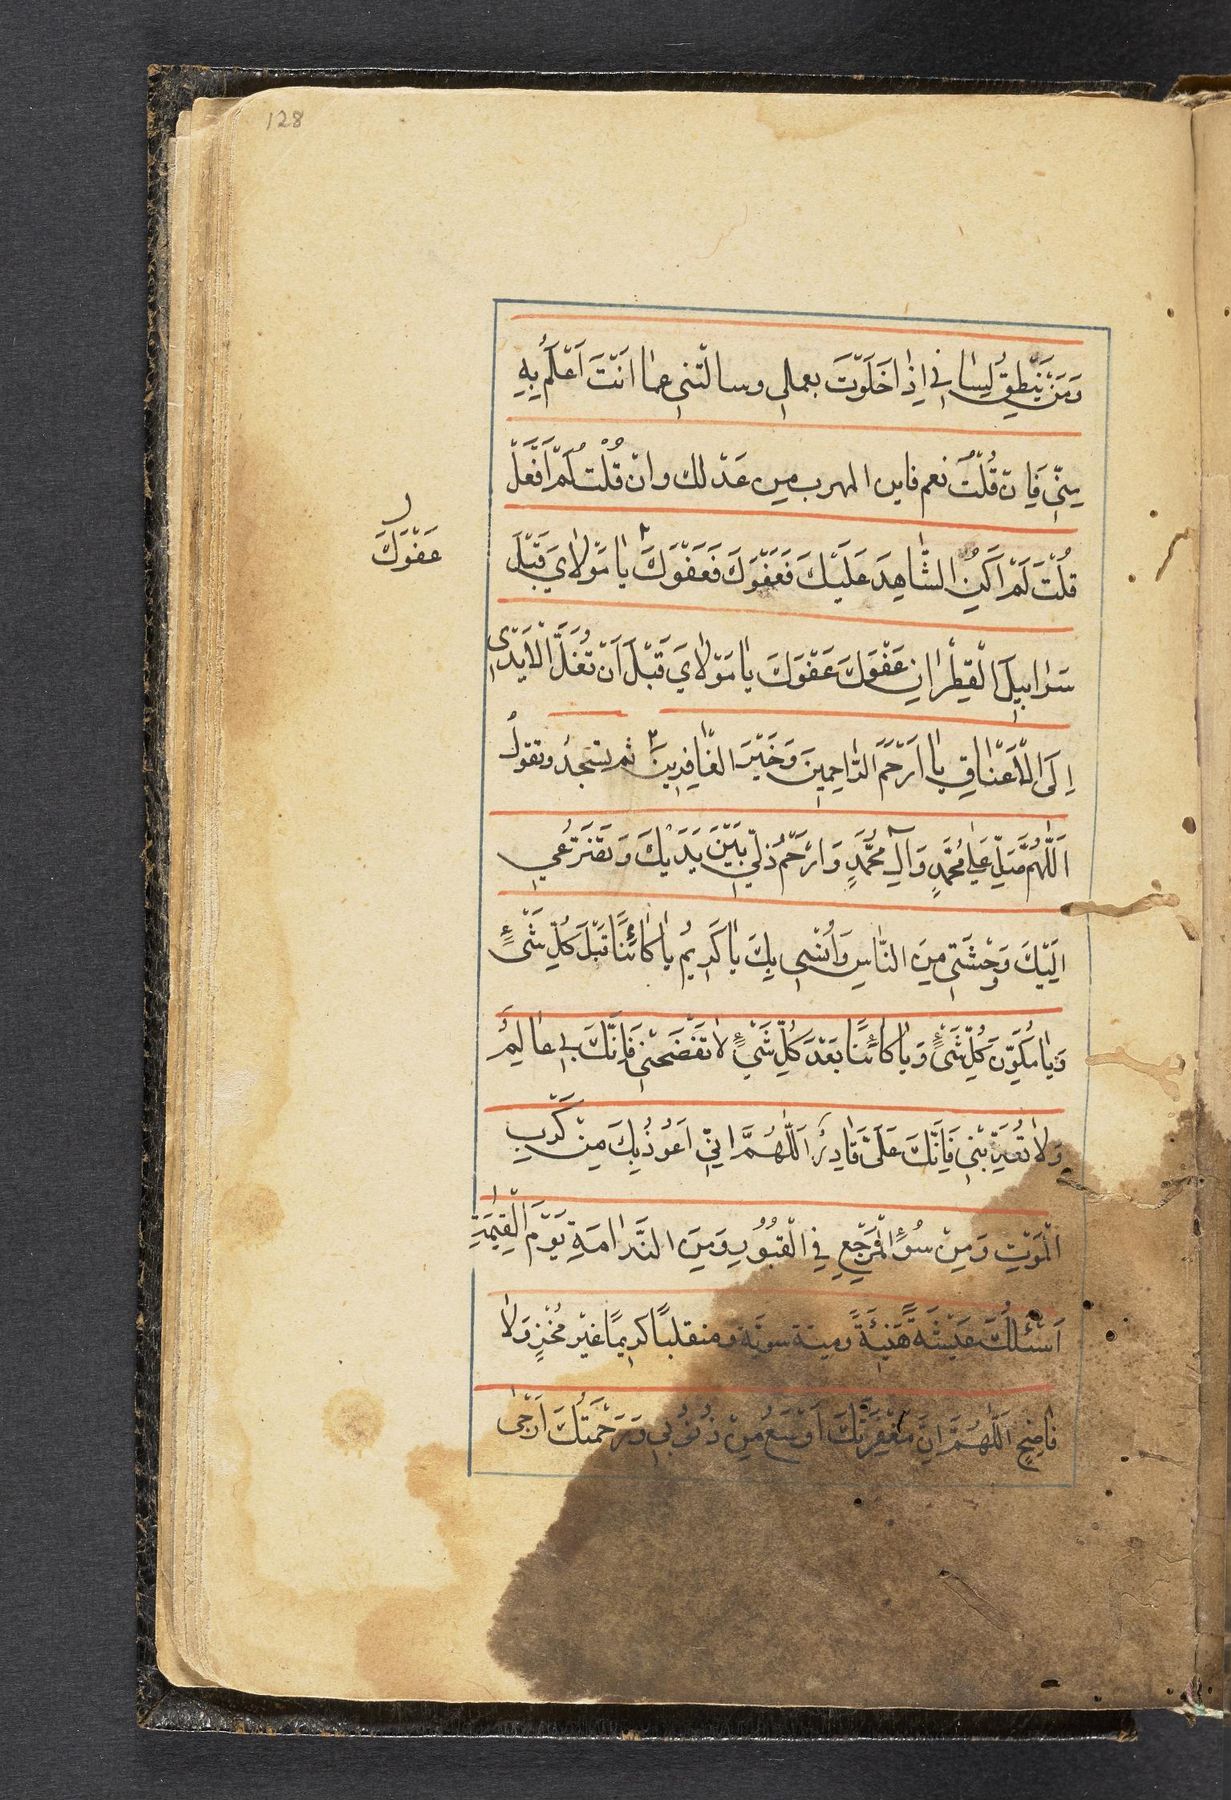 128
وَمَنْ يُنْطِقُ لِسٰانِي اِذٰا خَلَوْتَ بعملي وسالتنى عما اَنْتَ اَعْلَمُ بِهِ
مِنِّي فَاِنْ قُلْتُ نعم فاين المهرب مِن عَدْلك وانْ قُلْت لَمْ اَفْعَلْ
قُلْتَ لَمْ اَكُنِ الشّٰاهِدَ عَلَيْكَ فَعَفْوَكَ فَعَفْوَكَ يٰا مَوْلٰايَ قَبْلَ
عَفْوَكَ
سَرٰابِيلَ الْقَطِرٰانِ عَفْوَكَ عَفْوَكَ يٰا مَوْلٰايَ قَبْلَ اَنْ تُغَلَّ الْاَيْدِى
اِلَى الْاَعْنٰاقِ يٰا اَرْحَمَ الرّٰاحِمِينَ وَخَيْرَ الغٰافِرِينَ ثم تسجدُ وتقولُ
اَللّٰهُمَّ صَلِّ عَلٰى مُحَمَّدٍ وَآلِ مُحَمَّدٍ وَارْحَمْ ذُلِّي بَيْنَ يَدَيْكَ وَتَضَرُّعِي
اِلَيْكَ وَوَحْشَتِي مِنَ النّٰاسِ وَاُنْسِى بِكَ يٰا كَرِيمُ يٰا كٰائِنًا قَبْلَ كُلِّ شَىْءٍ
وَيٰا مُكَوِّنَ كُلِّ شَىْءٍ وَيٰا كٰائِنًا بَعْدَ كُلِّ شَىْءٍ لٰا تَفْضَحْنِي فَاِنَّكَ بِي عٰالِمٌ
وَلٰا تُعَذِّبْنِي فَاِنَّكَ عَلَىَّ قٰادِرٌ اَللّٰهُمَّ اِنِّي اَعُوذُ بِكَ مِنْ كَرْبِ
الْمَوْتِ وَمِنْ سُوْءِ الْمَرْجَعِ فِي الْقُبُورِ وَمِنَ النَّدٰامَةِ يَوْمَ الْقِيٰمَةِ
اَسْئَلُكَ عَيْشَةً هَنِيْئَةً وميتة سويّة ومنقلبًا كريمًا غَيْرَ مُخْزٍ وَلٰا
فٰاضِحٍ اَللّٰهُمَّ اِنَّ مَغْفِرَتَكَ اَوْسَعُ مِنْ ذُنُوْبِي وَرَحْمَتُكَ اَرْجٰى